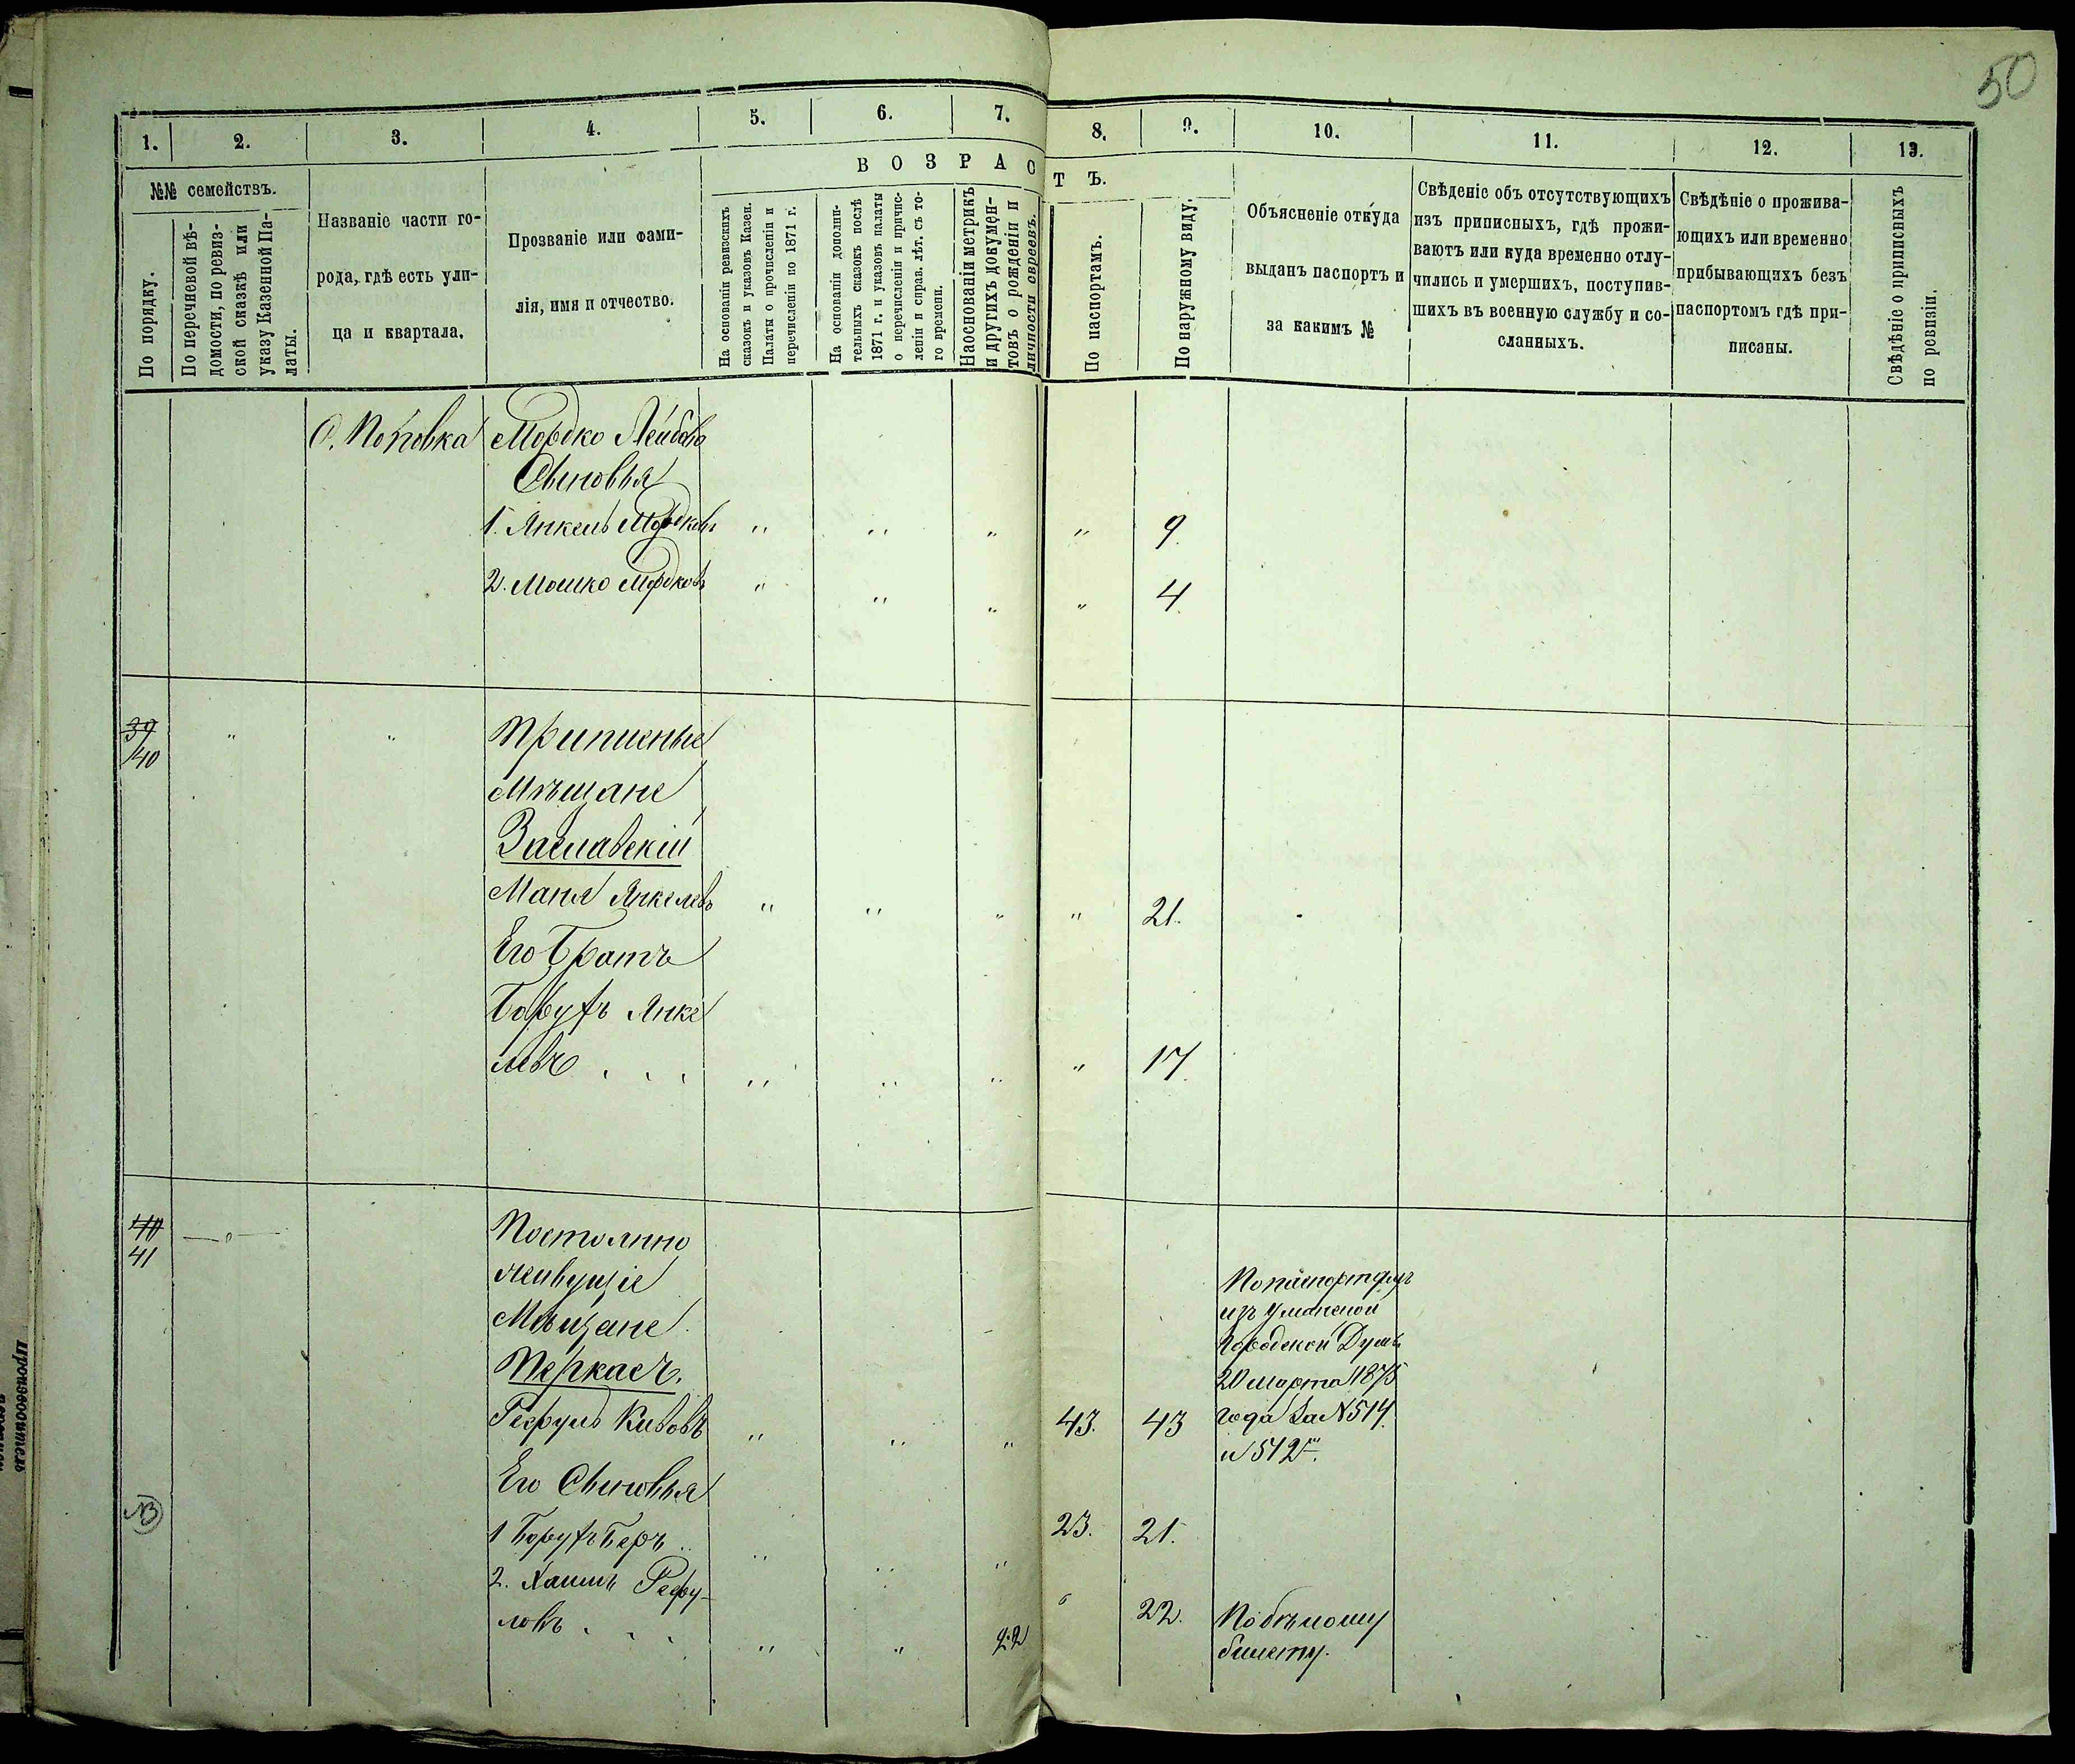 50
1. 2. 3. 4. 5. 6. 7. 8. 9. 10. 11. 12. 13.
№№ семействъ.
По порядку.
По перечневой вѣ-
домости, по ревиз-
ской сказкѣ или
указу Казенной Па-
латы.
Названіе части го-
рода, гдѣ есть ули-
ца и квартала.
Прозваніе или фами-
лія, имя и отчество.
ВОЗРАСТЪ.
На основаніи ревизскихъ
сказокъ и указовъ Казен.
Палаты о прочисленіи и
перечисленіи по 1871 г.
На основаніи дополни-
тельныхъ сказокъ послѣ
1871 г. и указовъ палаты
о перечисленіи и причис-
леніи и справ. лѣт. съ то-
го времени.
На основаніи метрикъ
и другихъ докумен-
товъ о рожденіи и
личности евреевъ.
По паспортамъ.
По наружному виду.
Объясненіе откуда
выданъ паспортъ и
за какимъ №
Свѣденіе объ отсутствующихъ
изъ приписныхъ, гдѣ прожи-
ваютъ или куда временно отлу-
чились и умершихъ, поступив-
шихъ въ военную службу и со-
сланныхъ.
Свѣдѣніе о прожива-
ющихъ или временно
прибывающихъ безъ
паспортомъ гдѣ при-
писаны.
Свѣдѣніе о приписныхъ
по ревизіи.
С. Поповка Мордко Лейбовъ
Сыновья
1. Янкель Мордковъ " " " " 9.
2. Мошко Мордковъ " " " " 4.
39 " " Приписные
40
Мѣщане
Заславскій
Маня Янкелевъ " " " " 21.
Его Братъ
Борухъ Янке
левъ . . . " " " " 17.
40 —"— Постоянно
41
живущіе
Мѣщане
Перкасъ.
По паспортамъ
изъ Уманской
Городской Думы
20 Марта 1875
года За №514
и 512м.
Герфулъ Кивовъ " " " 43. 43
Его Сыновья
1 Борухъ Беръ .. " " " 23. 21.
2. Хаимъ Герфу-
ловъ . . . " " 22 " 22.
По бѣлому
билету.
NB